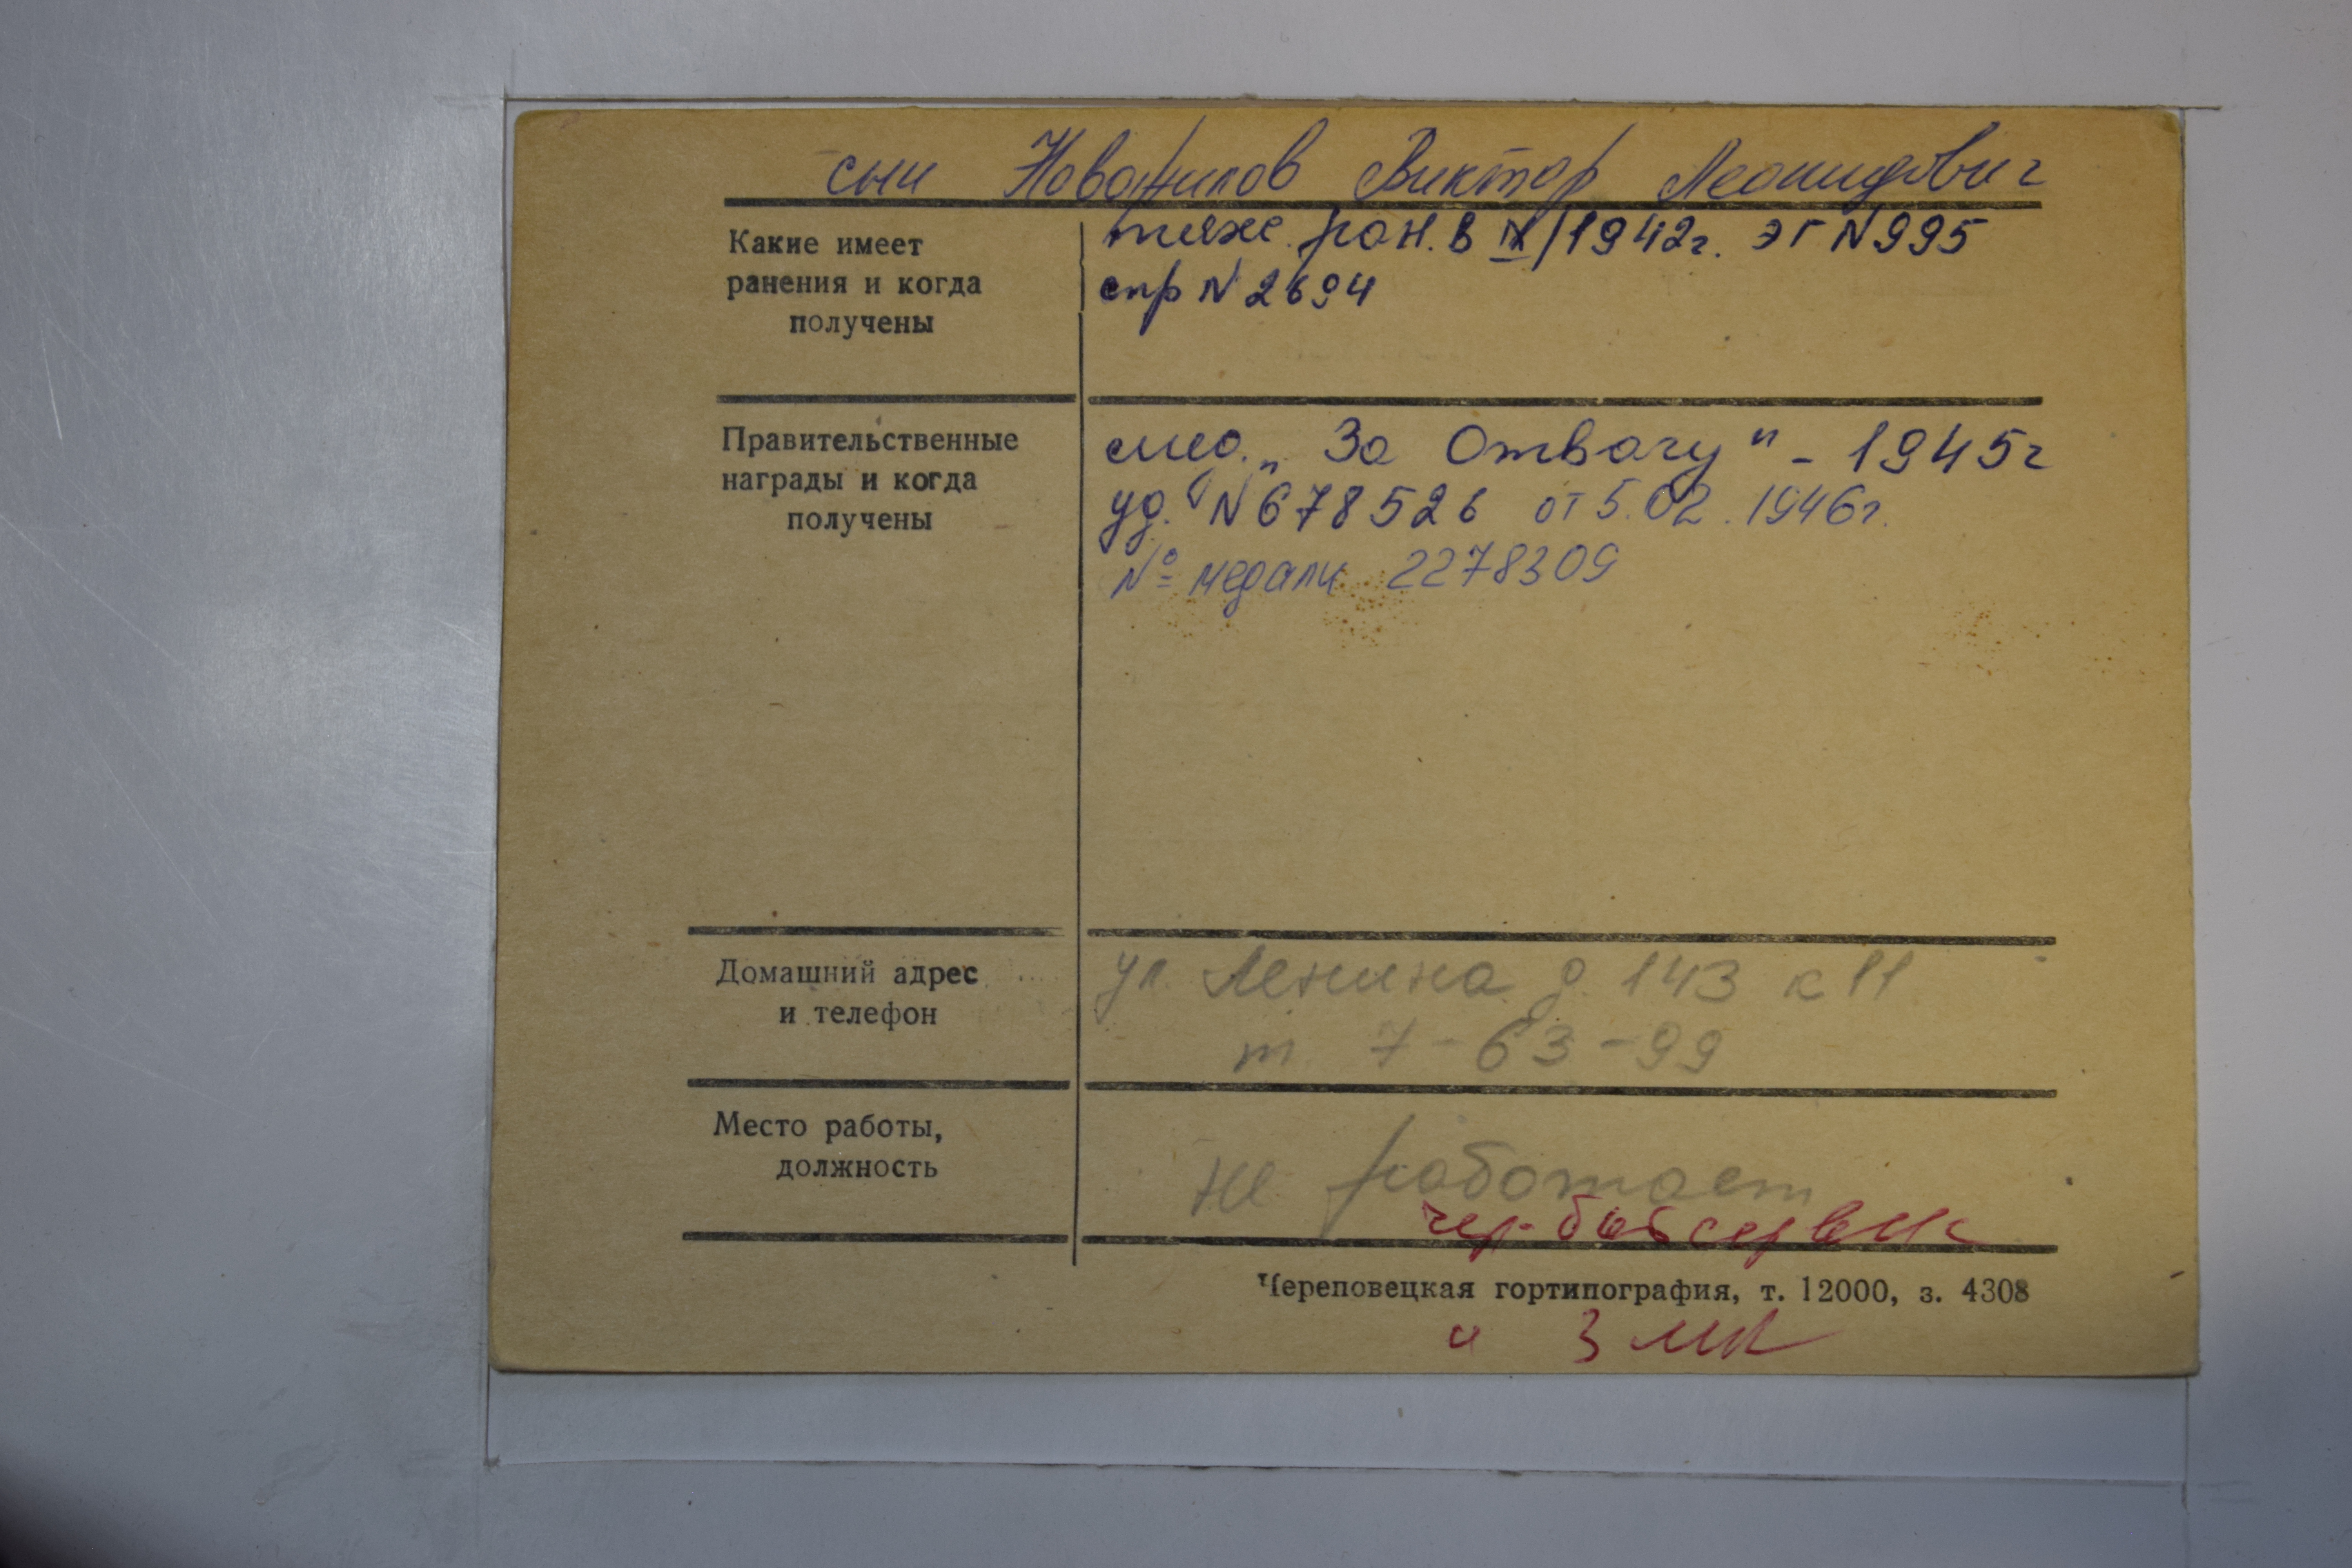 сын Новожилов Виктор Леонидович
Какие имеет ранения и когда получены
тяже. ран. в IX/1942г. ЭГ N995
спр N2694
Правительственные награды и когда получены
мед. „За Отвагу" - 1945г
уд. N678526 от 5.02.1946г.
№ медали 2278309
Домашний адрес и телефон
ул. Ленина д. 143 к 11
т. 7-63-99
Место работы, должность
не работает
Череповецкая гортипография, т. 12000, з. 4308